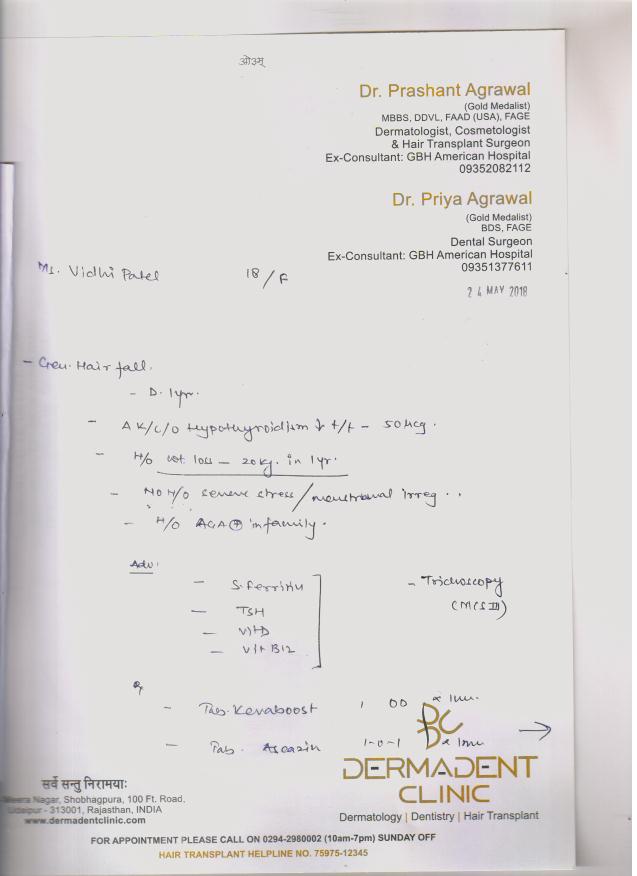 ओ३म्
Dr. Prashant Agrawal
(Gold Medalist)
MBBS, DDVL, FAAD (USA), FAGE
Dermatologist, Cosmetologist
& Hair Transplant Surgeon
Ex-Consultant: GBH American Hospital
09352082112
Dr. Priya Agrawal
(Gold Medalist)
BDS, FAGE
Dental Surgeon
Ex-Consultant: GBH American Hospital
09351377611
24 MAY 2018
Ms. Vidhi Patel 18/F
- Gen. Hair fall.
- D. 1yr.
- AK/C/O Hypothyroidism ↓ t/t - 50 mcg.
- H/O wt. loss - 20kg. in 1yr.
- No H/O severe stress/menstrual irreg..
- H/O AGA ⊕ in family.
Adv:
- S. Ferritin
- TSH
- Vit D
- Vit B12
- Trichoscopy
(MCS III)
Rx
- Tab. Keraboost 1 00 x 1m
- Tab. Ascazin 1-0-1 x 1m
→
DC
DERMADENT
CLINIC
Dermatology | Dentistry | Hair Transplant
सर्वे सन्तु निरामयाः
Meera Nagar, Shobhagpura, 100 Ft. Road,
Udaipur - 313001, Rajasthan, INDIA
www.dermadentclinic.com
FOR APPOINTMENT PLEASE CALL ON 0294-2980002 (10am-7pm) SUNDAY OFF
HAIR TRANSPLANT HELPLINE NO. 75975-12345